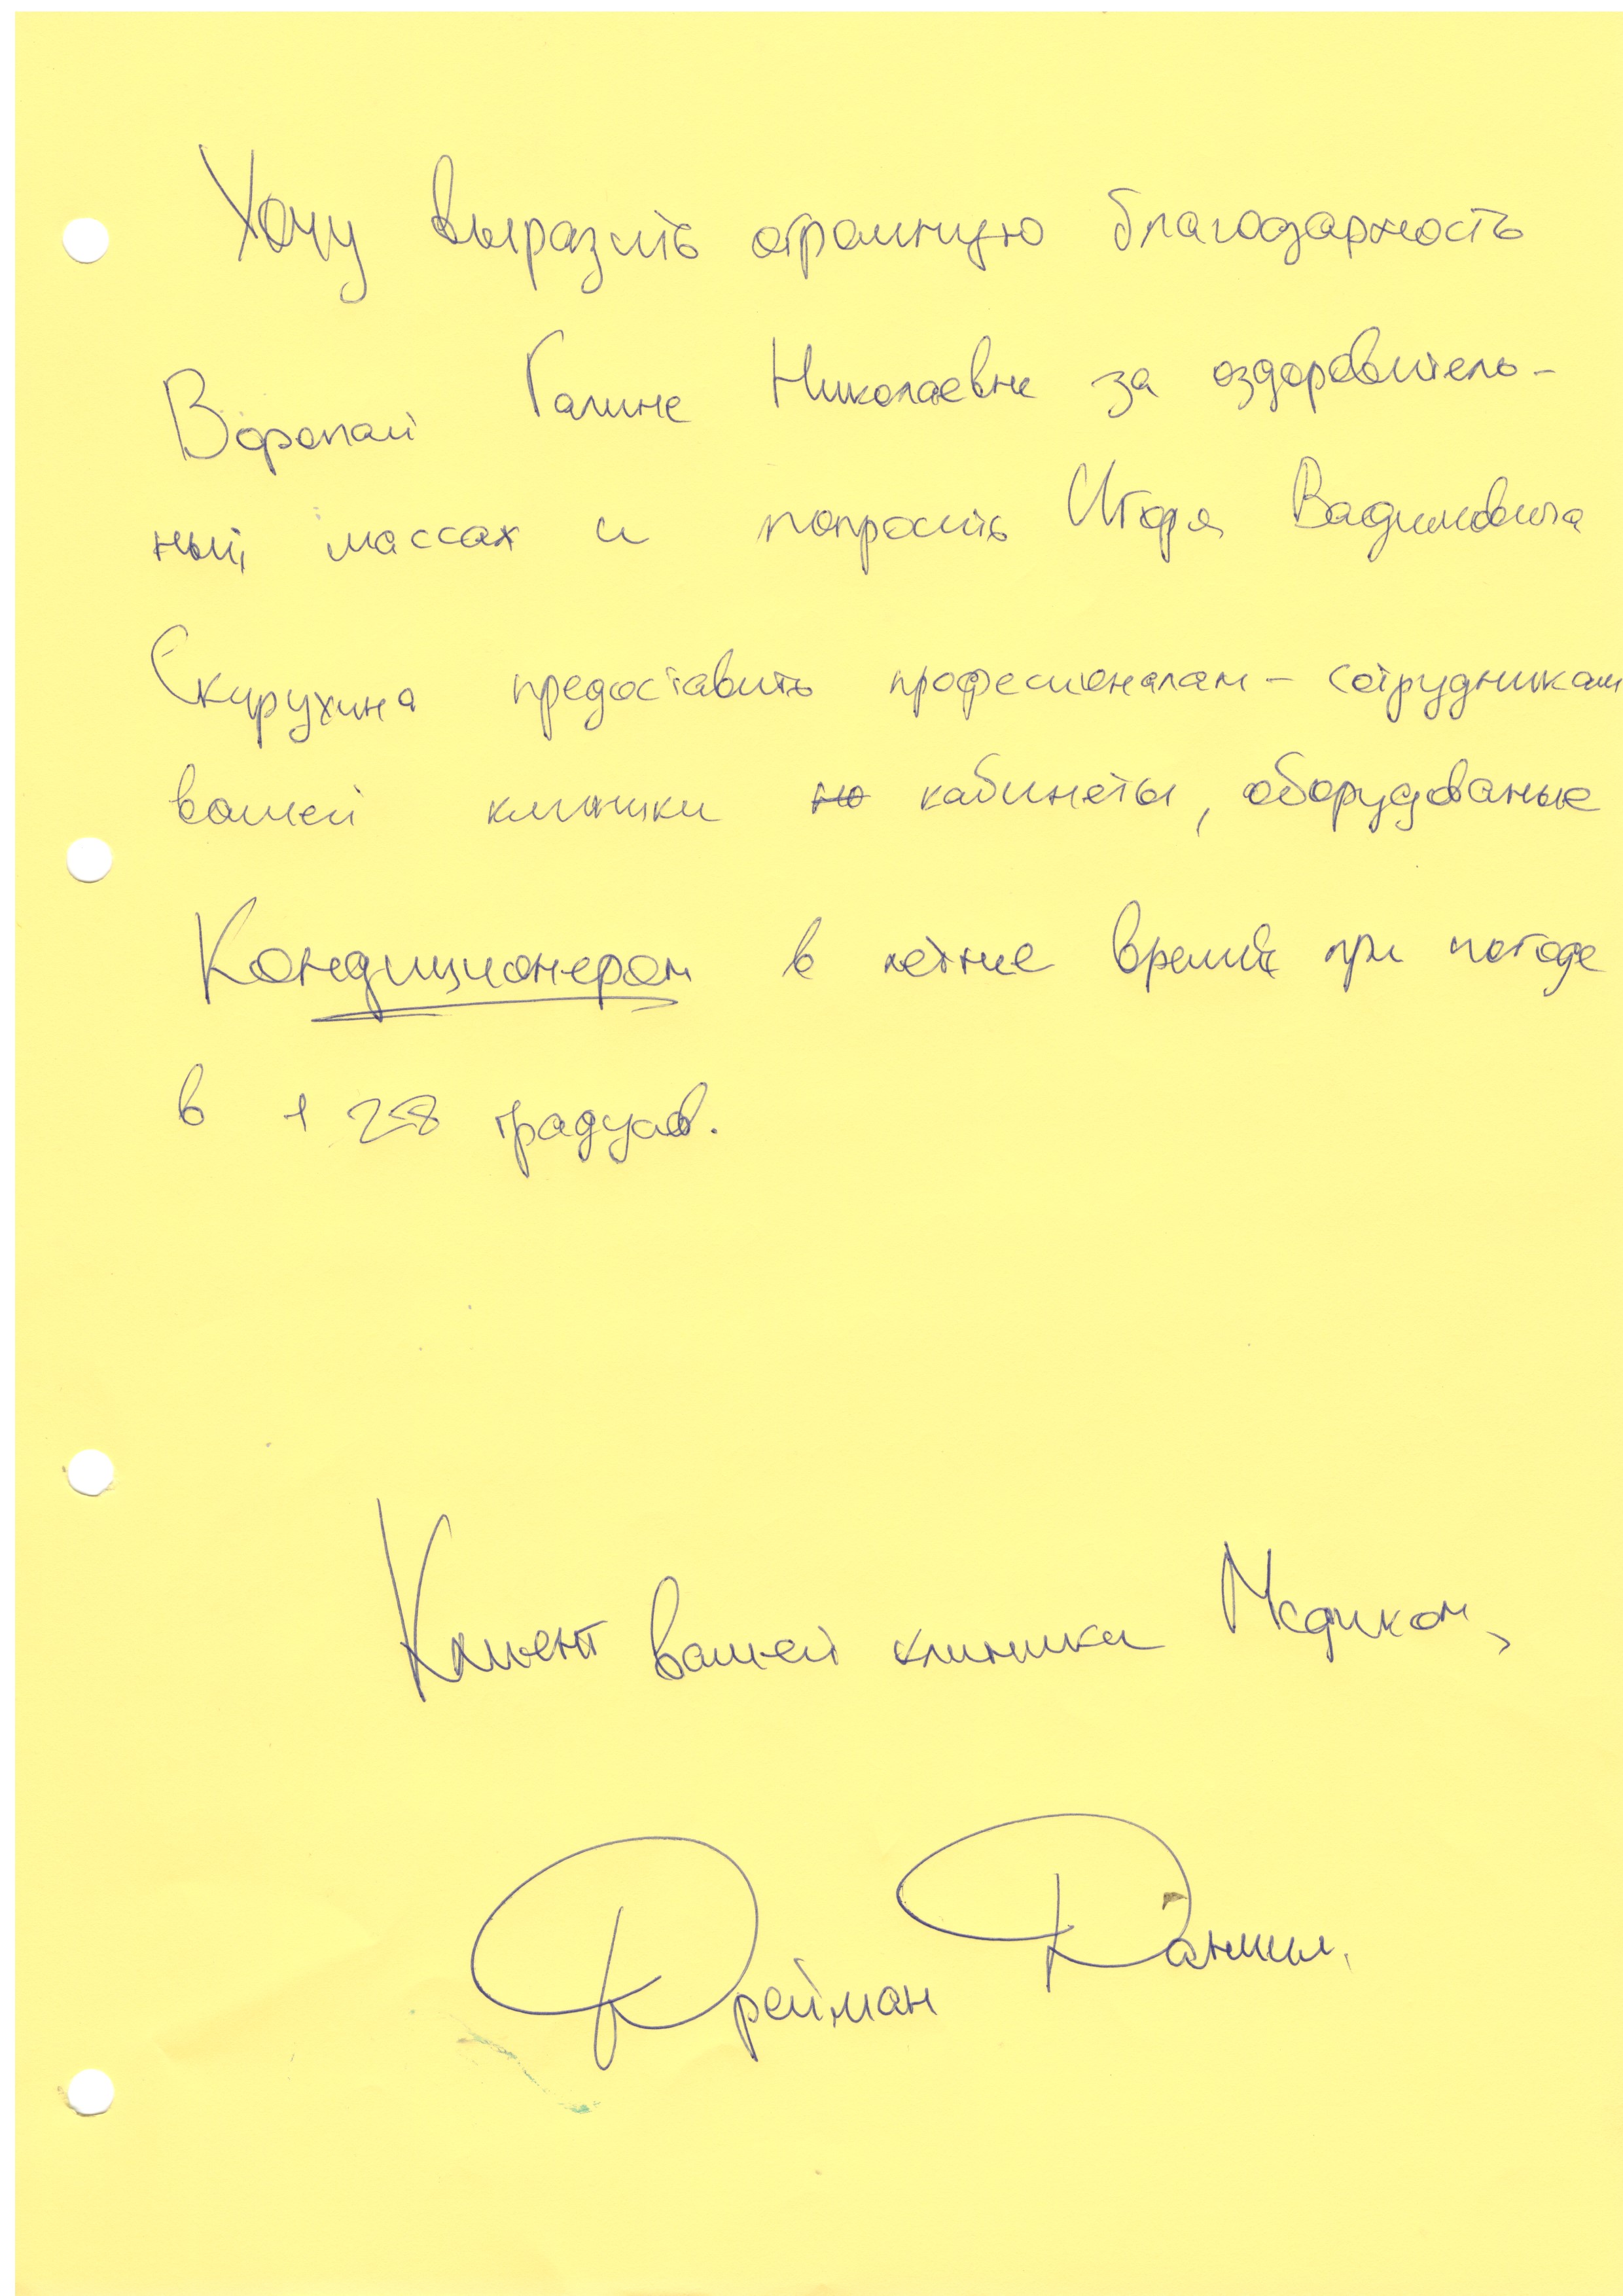 Хочу выразить огромную благодарность
Воропай Галине Николаевне за оздоровитель-
ный массаж и попросить Игоря Вадимовича
Скирухина предоставить професионалам - сотрудникам
вашей клиники кабинеты, оборудованые
Кондиционером в летнее время при погоде
в +28 градусов.
Клиент вашей клиники Медиком,
Дрейман Даниил.